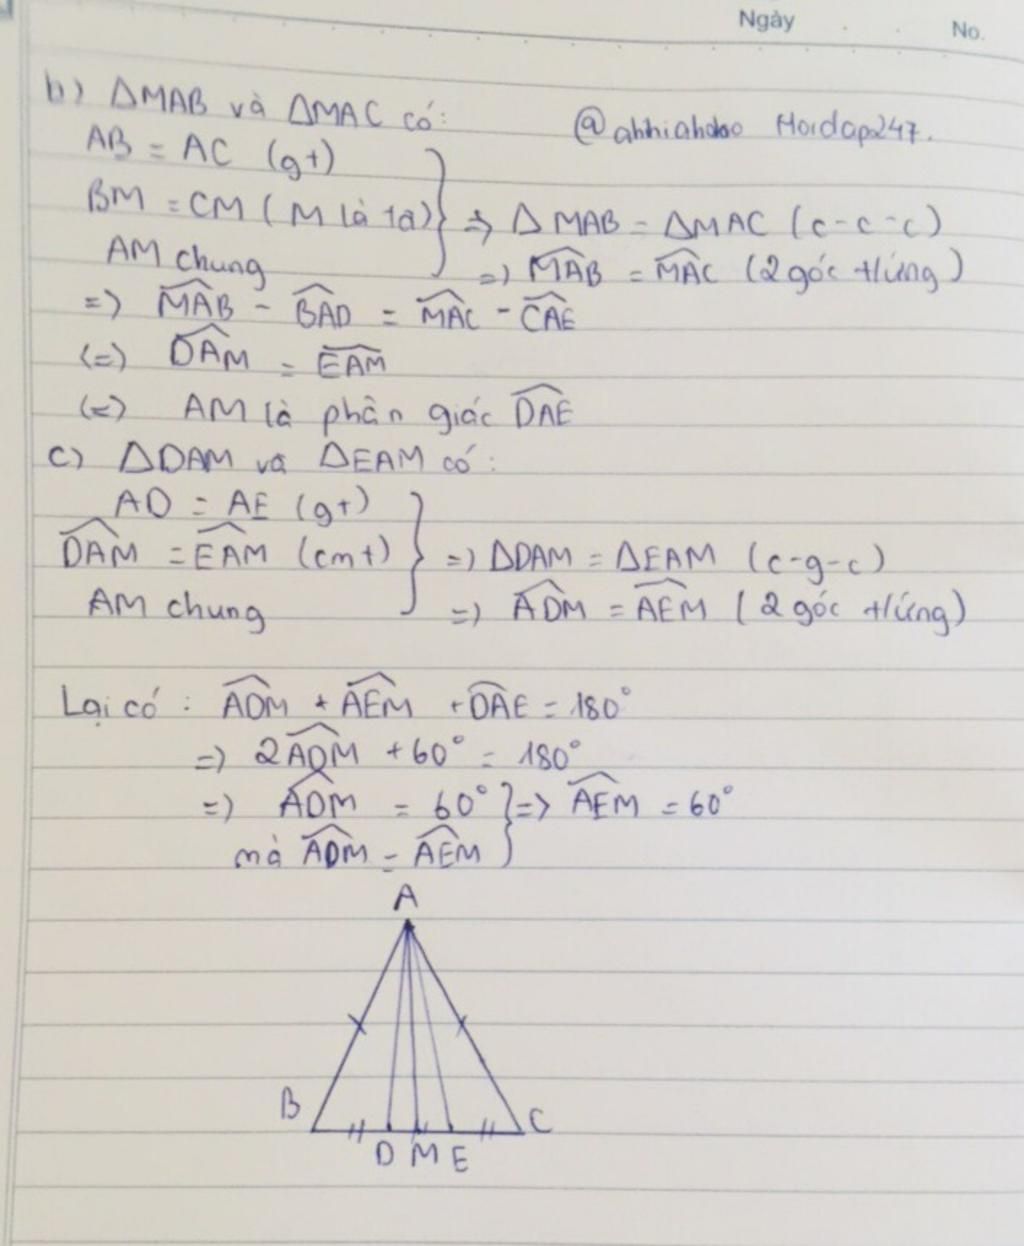 Ngày
No.
b) ΔMAB và ΔMAC có: @ahhiahdoo Hoidap247.
AB = AC (gt)
BM = CM (M là tđ) ⇒ ΔMAB = ΔMAC (c-c-c)
AM chung ⇒ \widehat{MAB} = \widehat{MAC} (2 góc t/ứng)
⇒ \widehat{MAB} - \widehat{BAD} = \widehat{MAC} - \widehat{CAE}
(=) \widehat{DAM} = \widehat{EAM}
(=) AM là phân giác \widehat{DAE}
c) ΔDAM và ΔEAM có:
AD = AE (gt)
\widehat{DAM} = \widehat{EAM} (cmt) ⇒ ΔDAM = ΔEAM (c-g-c)
AM chung ⇒ \widehat{ADM} = \widehat{AEM} (2 góc t/ứng)
Lại có: \widehat{ADM} + \widehat{AEM} + \widehat{DAE} = 180°
⇒ 2\widehat{ADM} + 60° = 180°
⇒ \widehat{ADM} = 60° } ⇒ \widehat{AEM} = 60°
mà \widehat{ADM} = \widehat{AEM}
A
B C
D M E